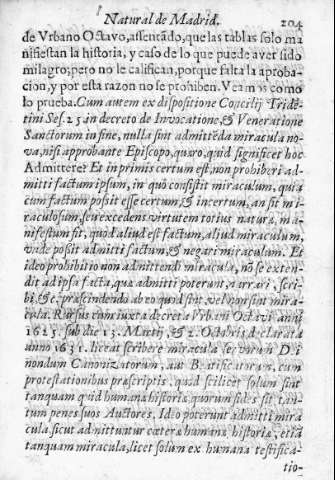 Natural de Madrid. 204
de Vrbano Octavo, assentãdo, que las tablas solo ma
nifiestan la historia, y caso de lo que puede aver sido
milagro; pero no le califican, porque falta la aproba-
cion, y por esta razon no se prohiben. Veamos como
lo prueba. Cum autem ex dispositione Cõcilij Tride-
tini Ses. 25 in decreto de Invocatione, & Veneratione
Sanctorum in fine, nulla sint admittẽda miracula no-
va, nisi approbante Episcopo, quæro, quid significet hoc
Admittere? Et in primis certum est, non prohiberi ad-
mitti factum ipsum, in quò consistit miraculum, quia
cum factum possit esse certum, & incertum, an sit mi-
raculosum, seu excedens virtutem totius naturæ, ma-
nifestum sit, quòd aliud est factum, aliud miraculum,
vnde possit admitti factum, & negari miraculum. Et
ideo prohibitio non admittendi miracula, nõ se exten-
dit ad ipsa facta, quæ admitti poterunt, narrari, scri-
bi, &c, præscindendo ab eo quòd sint, vel non sint mira-
cula. Rursus cum iuxta decreta Vrbani Octavi anni
1625. sub die 13. Martij, & 2. Octobris declarata
anno 1631. liceat scribere miracula servorum Dei
nondum Canonizatorum, aut Beatificatorum, cum
protestationibus præscriptis, quòd scilicet solùm sint
tanquam quid humanæ historiæ, quorum fides sit tan-
tum penes suos Auctores, Ideo poterunt admitti mira
cula, sicut admittuntur cæteræ humanæ historiæ, etiã
tanquam miracula, licet solum ex humana testifica-
tio-